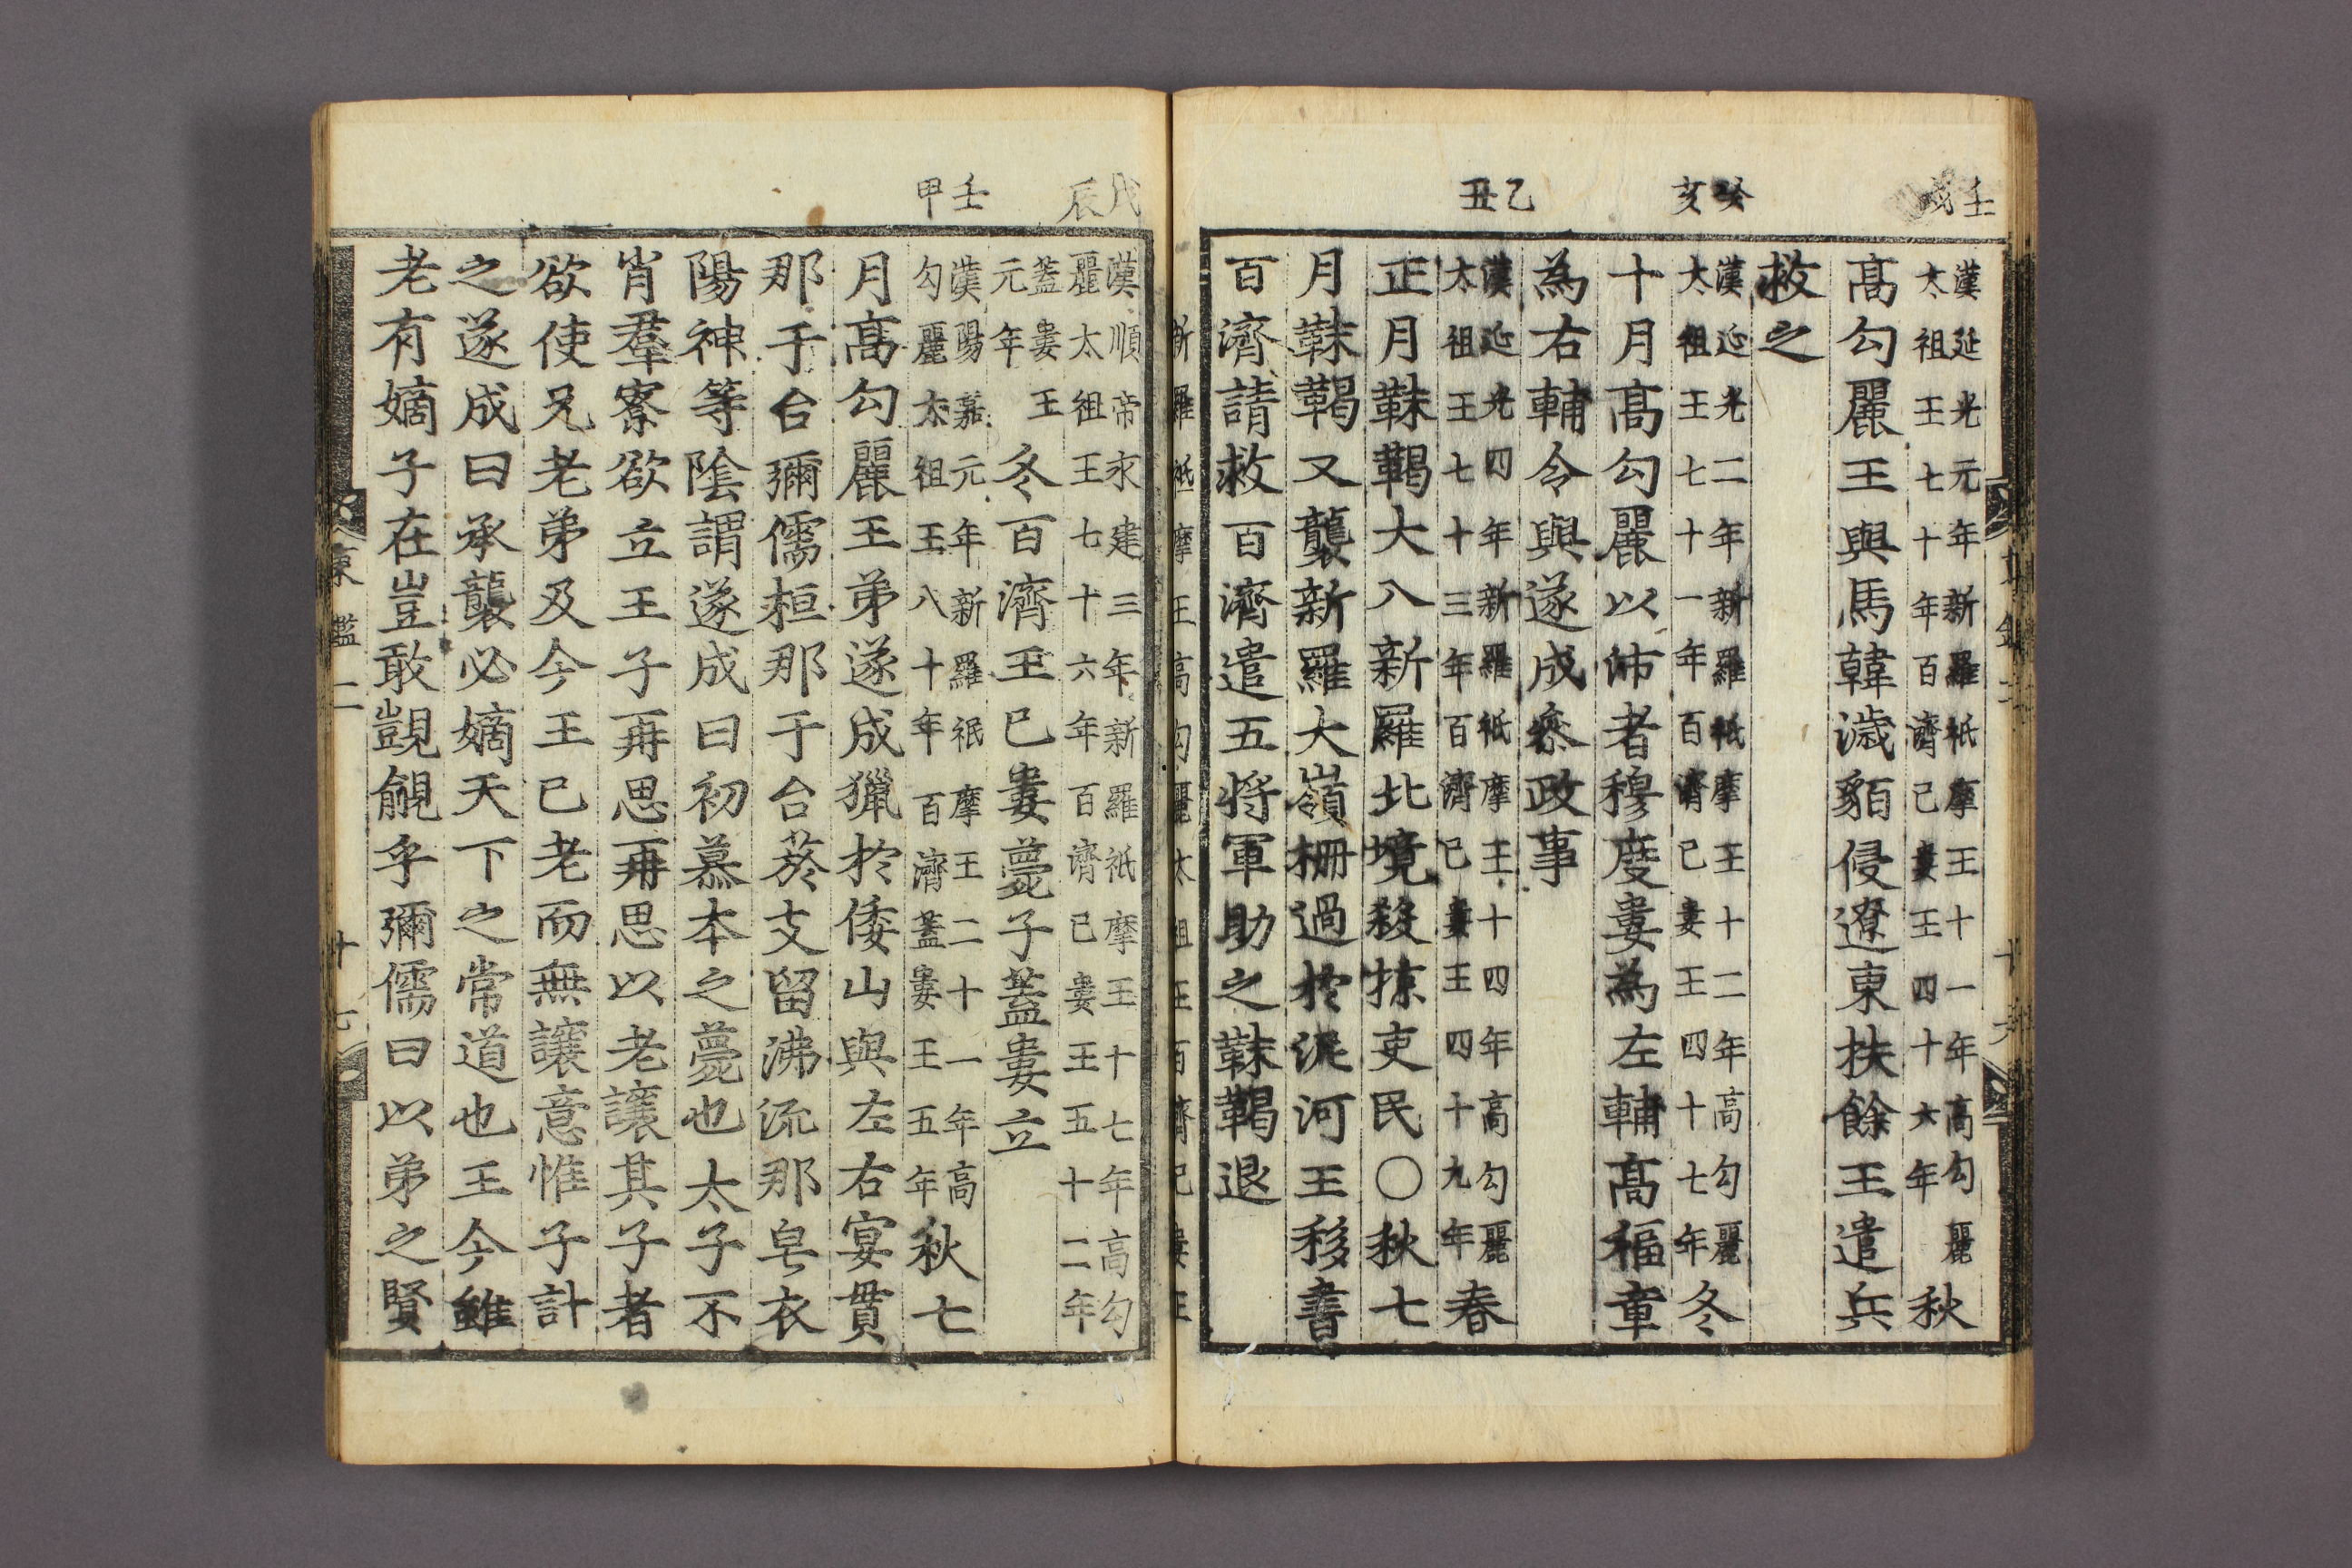 壬戌
漢延光元年新羅祇摩王十一年高勾麗
太祖王七十年百濟己婁王四十六年
秋
高勾麗王與馬韓濊貊侵遼東扶餘王遣兵
救之
癸亥
漢延光二年新羅祇摩王十二年高勾麗
太祖王七十一年百濟己婁王四十七年
冬
十月高勾麗以沛者穆度婁為左輔高福章
為右輔令與遂成叅政事
乙丑
漢延光四年新羅祇摩王十四年高勾麗
太祖王七十三年百濟己婁王四十九年
春
正月靺鞨大入新羅北境殺掠吏民○秋七
月靺鞨又襲新羅大嶺柵過於泥河王移書
百濟請救百濟遣五將軍助之靺鞨退
新羅祗摩王高勾麗太祖王百濟己婁王
戊辰
漢順帝永建三年新羅祇摩王十七年高勾
麗太祖王七十六年百濟己婁王五十二年
蓋婁王
元年
冬百濟王己婁薨子蓋婁立
壬申
漢陽嘉元年新羅祇摩王二十一年高
勾麗太祖王八十年百濟蓋婁王五年
秋七
月高勾麗王弟遂成獵於倭山與左右宴貫
那于台彌儒桓那于台菸支留沸流那皂衣
陽神等陰謂遂成曰初慕本之薨也太子不
肖羣寮欲立王子再思再思以老讓其子者
欲使兄老弟及今王已老而無讓意惟子計
之遂成曰承襲必嫡天下之常道也王今雖
老有嫡子在豈敢覬覦乎彌儒曰以弟之賢
東鑑二
十七